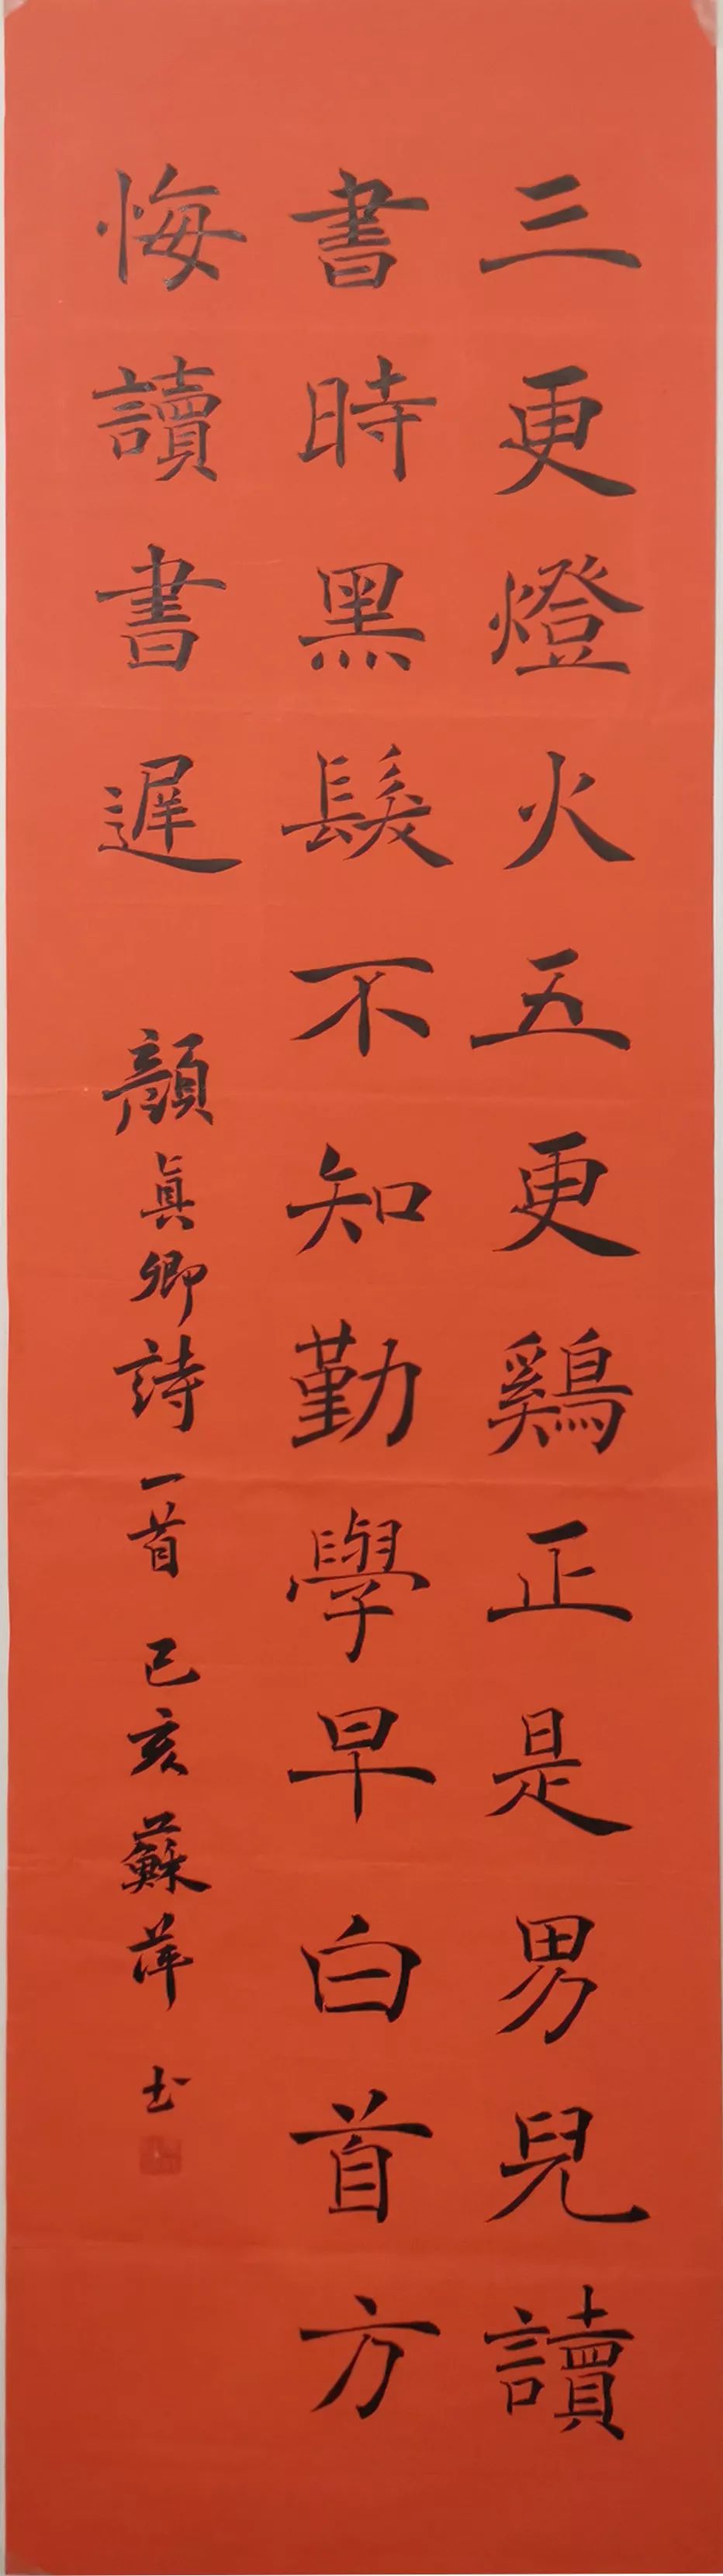 三更燈火五更鷄正是男兒讀
書時黑髮不知勤學早白首方
悔讀書遲 顏真卿詩一首 己亥蘇萍书